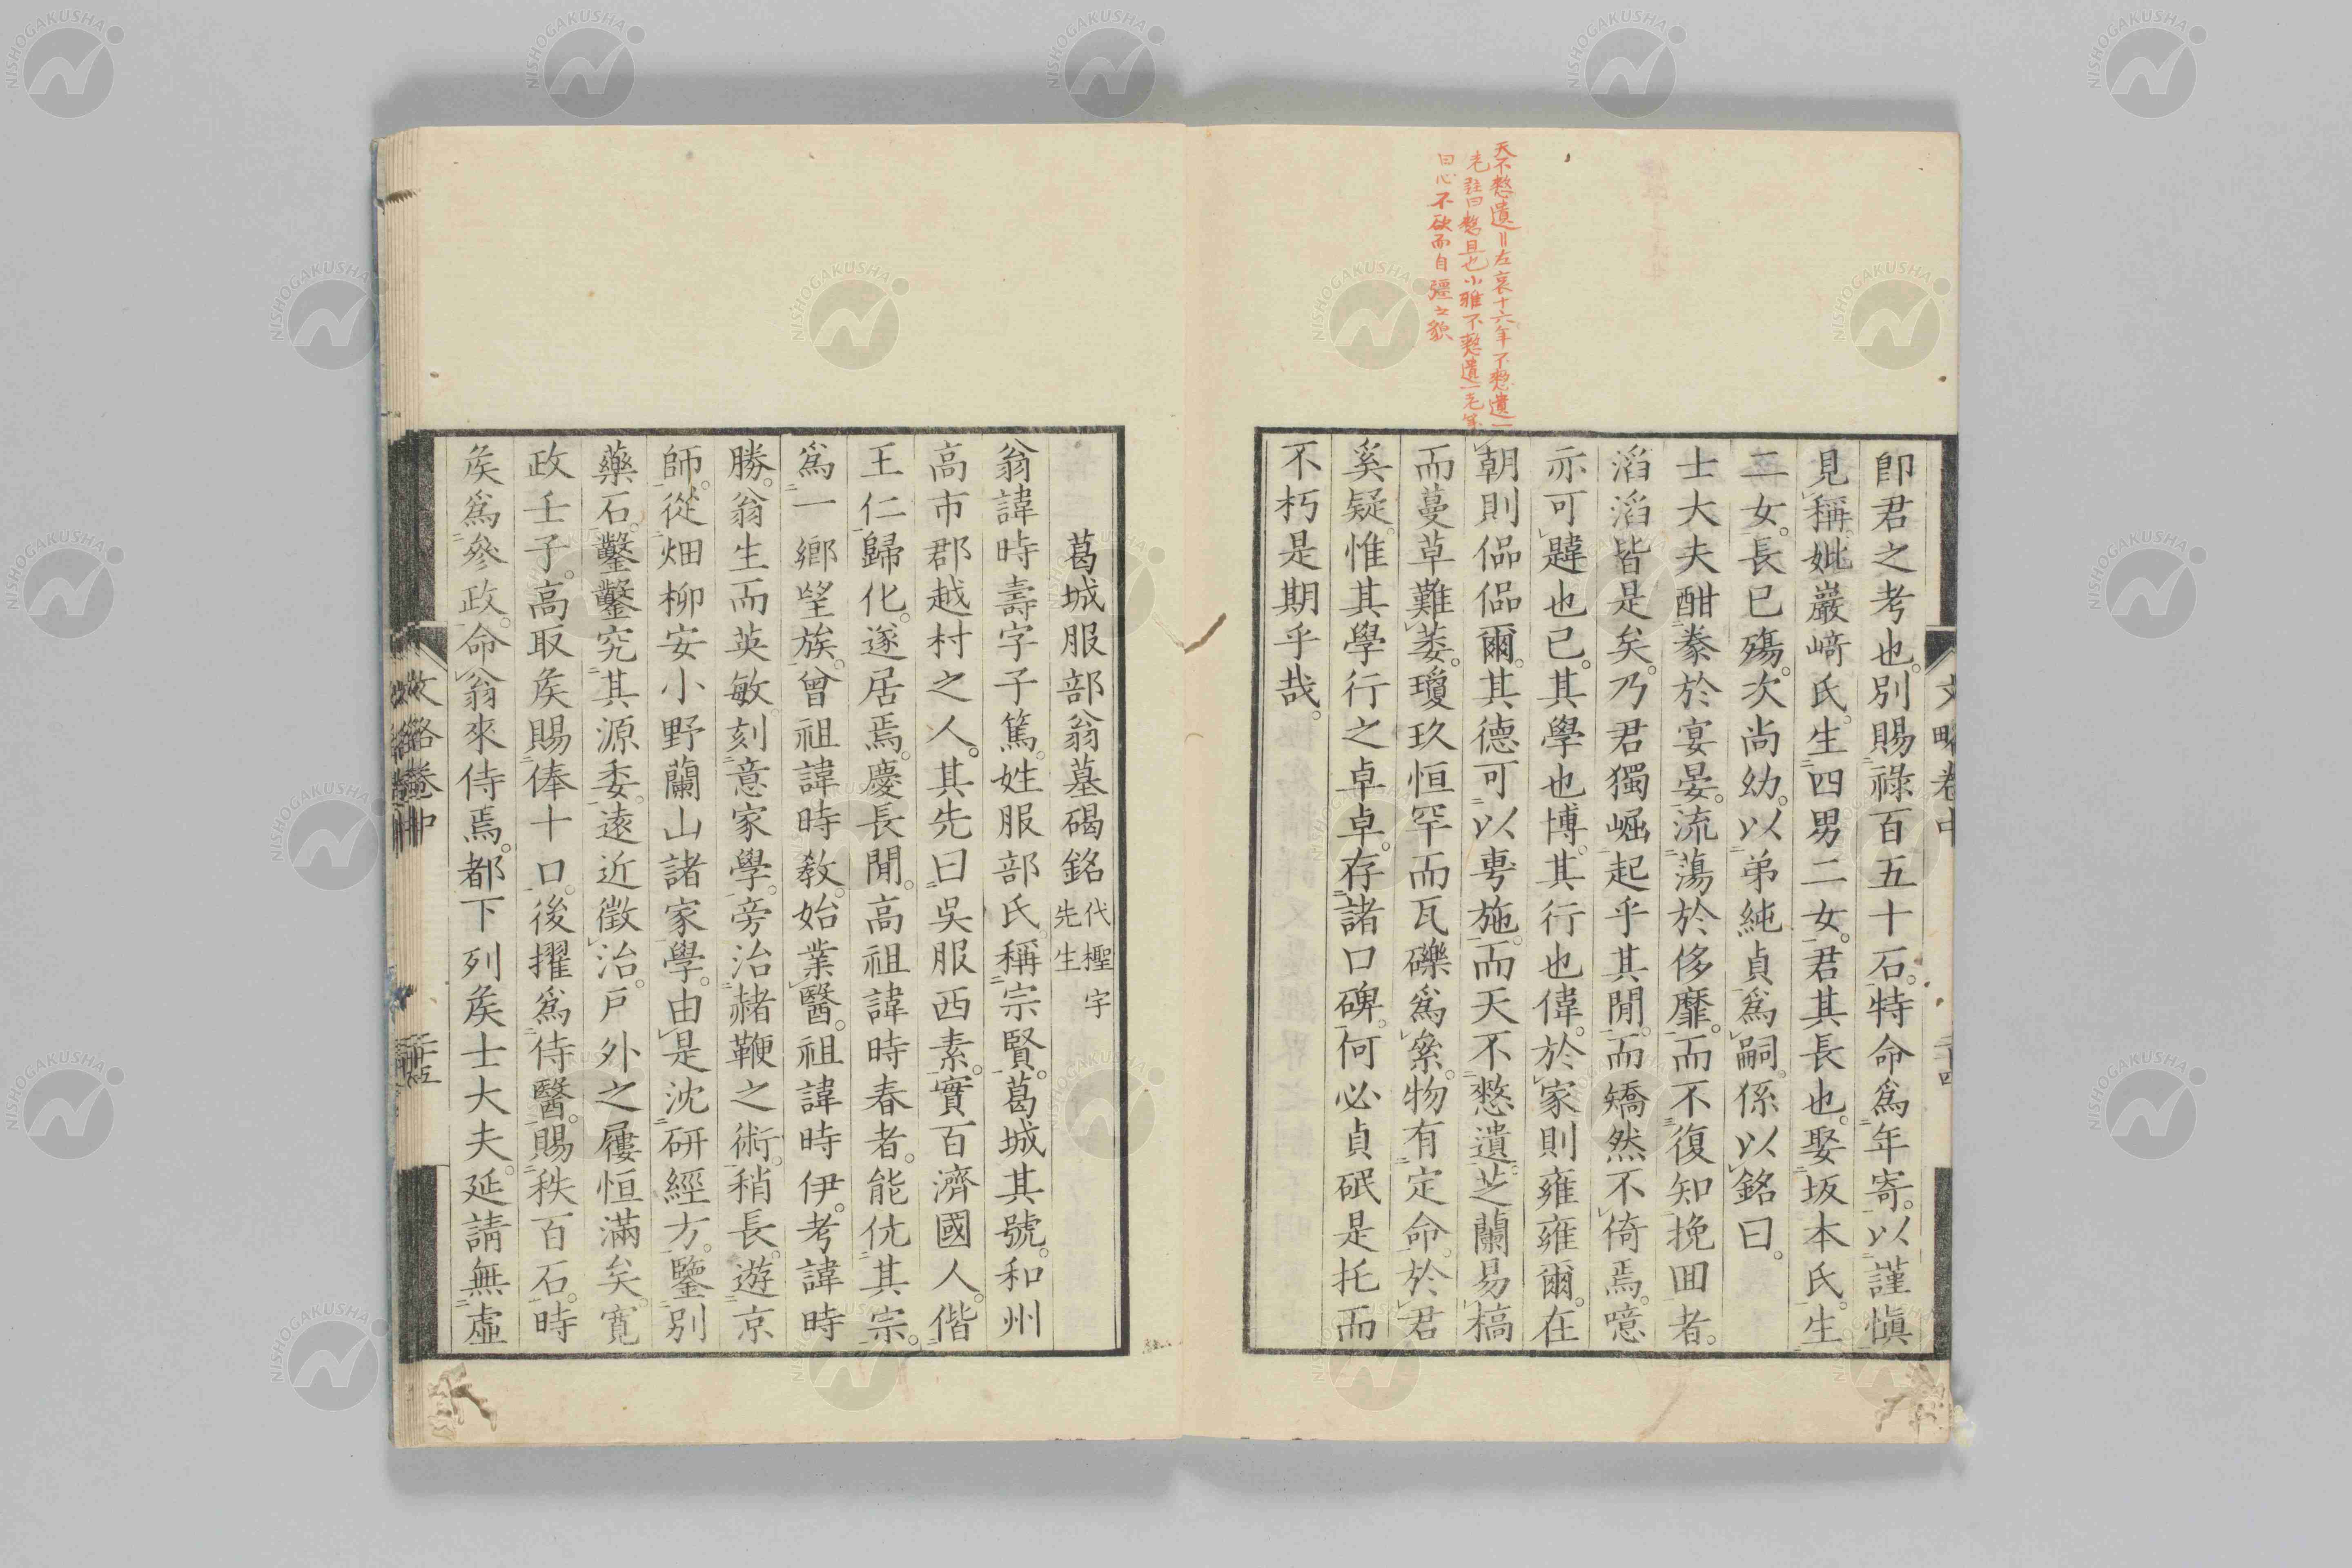 天不憖遺=左哀十六年不憖遺一
老註曰憖且也小雅不憖遺一老箋
曰心不欲而自彊之貌
文略卷中
即君之考也。別賜祿百五十石。特命爲年寄。以謹愼
見稱。妣巖﨑氏。生四男二女。君其長也。娶坂本氏。生
二女。長已殤。次尚幼。以弟純貞爲嗣。係以銘曰。
士大夫酣豢於宴晏。流蕩於侈靡。而不復知挽回者。
滔滔皆是矣。乃君獨崛起乎其閒。而矯然不倚焉。噫
亦可韙也已。其學也博。其行也偉。於家則雍雍爾。在
朝則偘偘爾。其德可以尃施。而天不憖遺。芝蘭易槁
而蔓草難萎。瓊玖恒罕而瓦礫爲絫。物有定命。於君
奚疑。惟其學行之卓卓。存諸口碑。何必貞珉是托。而
不朽是期乎哉。
葛城服部翁墓碣銘 代樫宇
先生
翁諱時壽字子篤。姓服部氏。稱宗賢。葛城其號。和州
高市郡越村之人。其先曰吳服西素。實百濟國人。偕
王仁歸化。遂居焉。慶長閒。高祖諱時春者。能伉其宗。
爲一鄉望族。曾祖諱時敎。始業醫。祖諱時伊。考諱時
勝。翁生而英敏。刻意家學。旁治赭鞭之術。稍長。遊京
師。從畑柳安小野蘭山諸家學。由是沈研經方。鑒別
藥石。鑿鑿究其源委。遠近徵治。戶外之屨恒滿矣。寬
政壬子。高取矦賜俸十口。後擢爲侍醫。賜秩百石。時
矦爲參政。命翁來侍焉。都下列矦士大夫。延請無虛